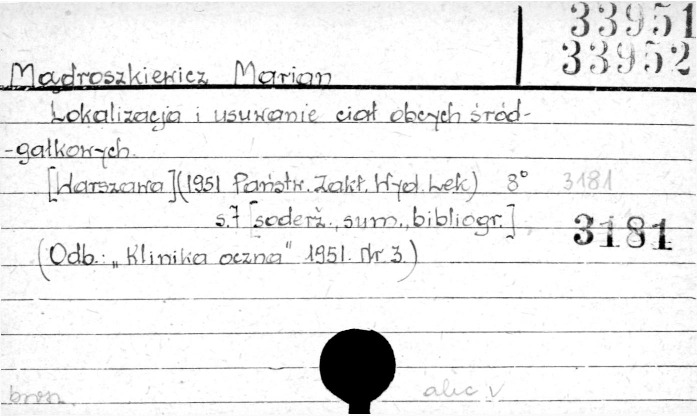 33951
33952
Mądroszkiewicz Marian
Lokalizacja i usuwanie ciał obcych śród-
-gałkowych.
[Warszawa] (1951 Państw. Zakł. Wyd. Lek) 8° 3181
s. 7 [soderž., sum., bibliogr.] 3181
(Odb.: „Klinika oczna" 1951. Nr. 3.)
alic V